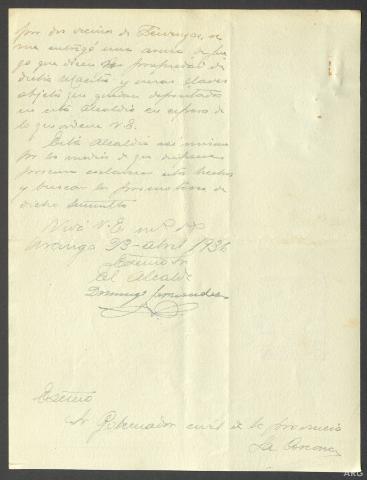 por dos vecinos de Feuxga, se
me entregó una arma de fue
go que dicen es propiedad de
dicho y unas llaves
objeto que quedan depositados
en esta Alcaldía en espera de
lo que ordene V.E.
Esta Alcaldía
por los medios de que dispone
procura esclarecer este hecho
y buscar los promotores de
dicho tumulto
Viva V.E. m. a.
Aranga 23 - abril 1936
Excmo Sr
El Alcalde
Domingo Fernandez
Excmo
Sr Gobernador civil de la provincia
La Coruña
ARG